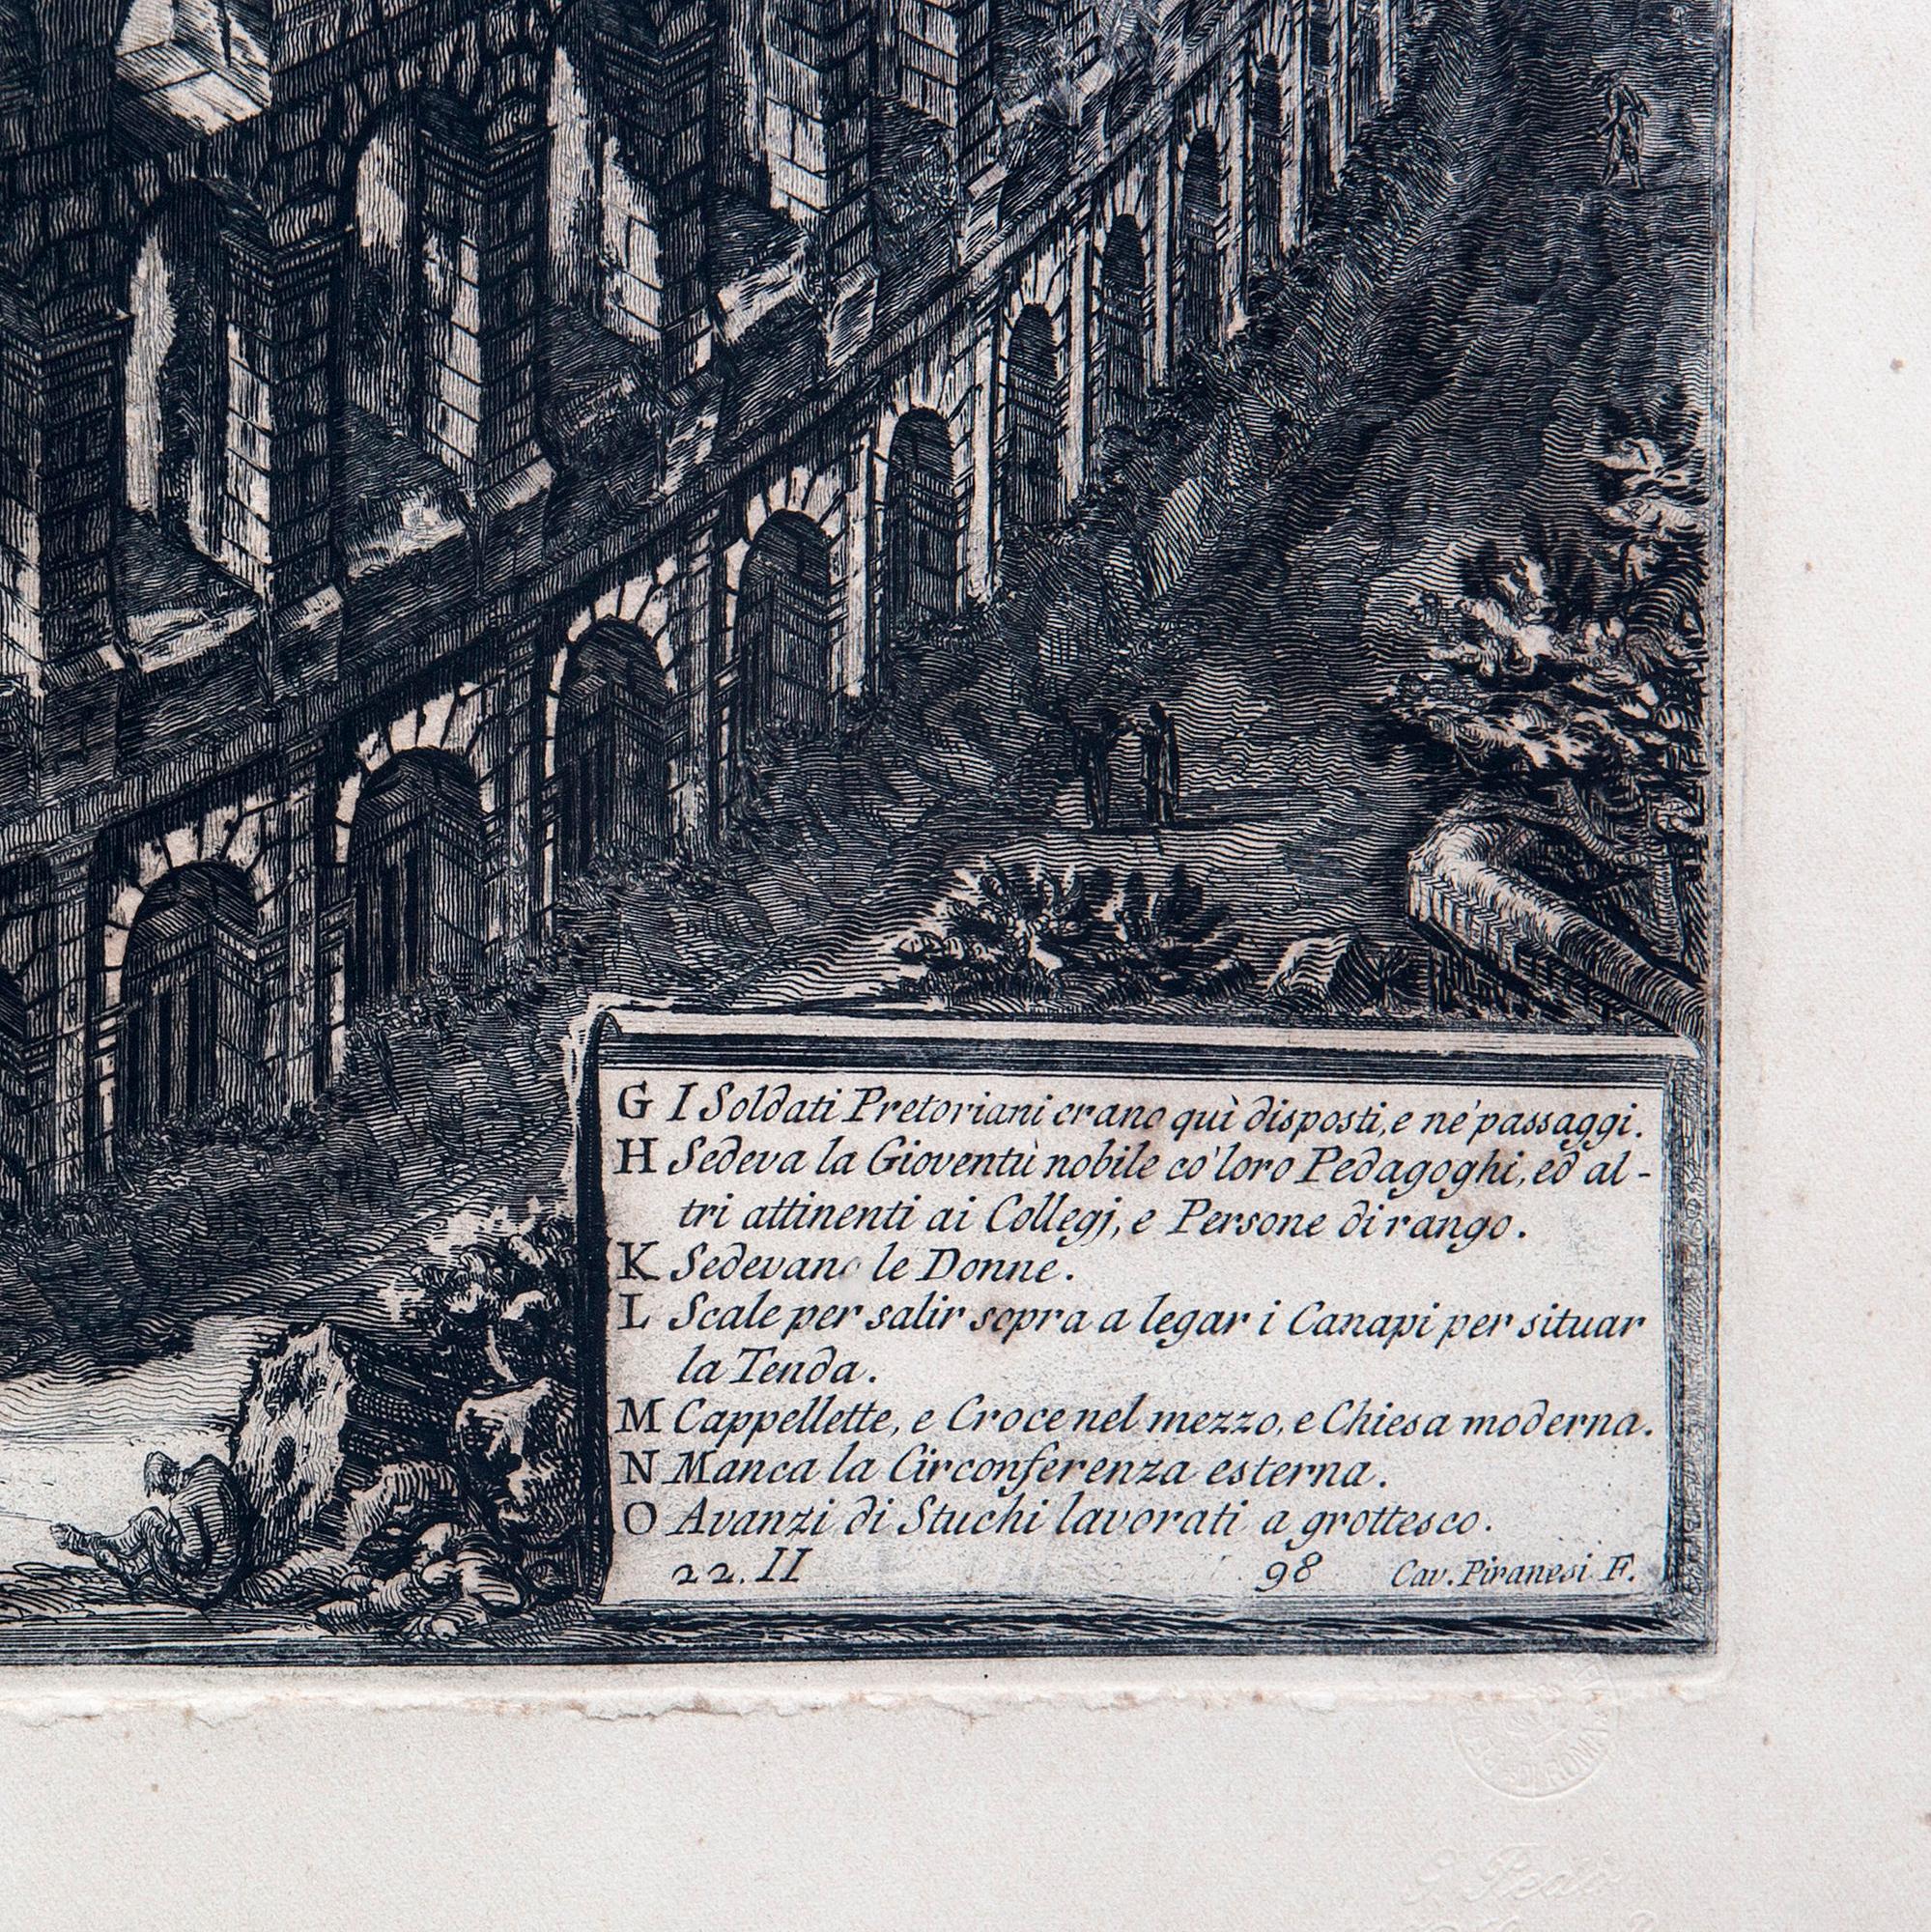 G I Soldati Pretoriani erano quì disposti, e ne' passaggi.
H Sedeva la Gioventù nobile co' loro Pedagoghi, ed al-
tri attinenti ai Collegj, e Persone di rango.
K Sedevano le Donne.
L Scale per salir sopra a legar i Canapi per situar
la Tenda.
M Cappellette, e Croce nel mezzo, e Chiesa moderna.
N Manca la Circonferenza esterna.
O Avanzi di Stuchi lavorati a grottesco.
22. II 98 Cav. Piranesi F.
DI ROMA